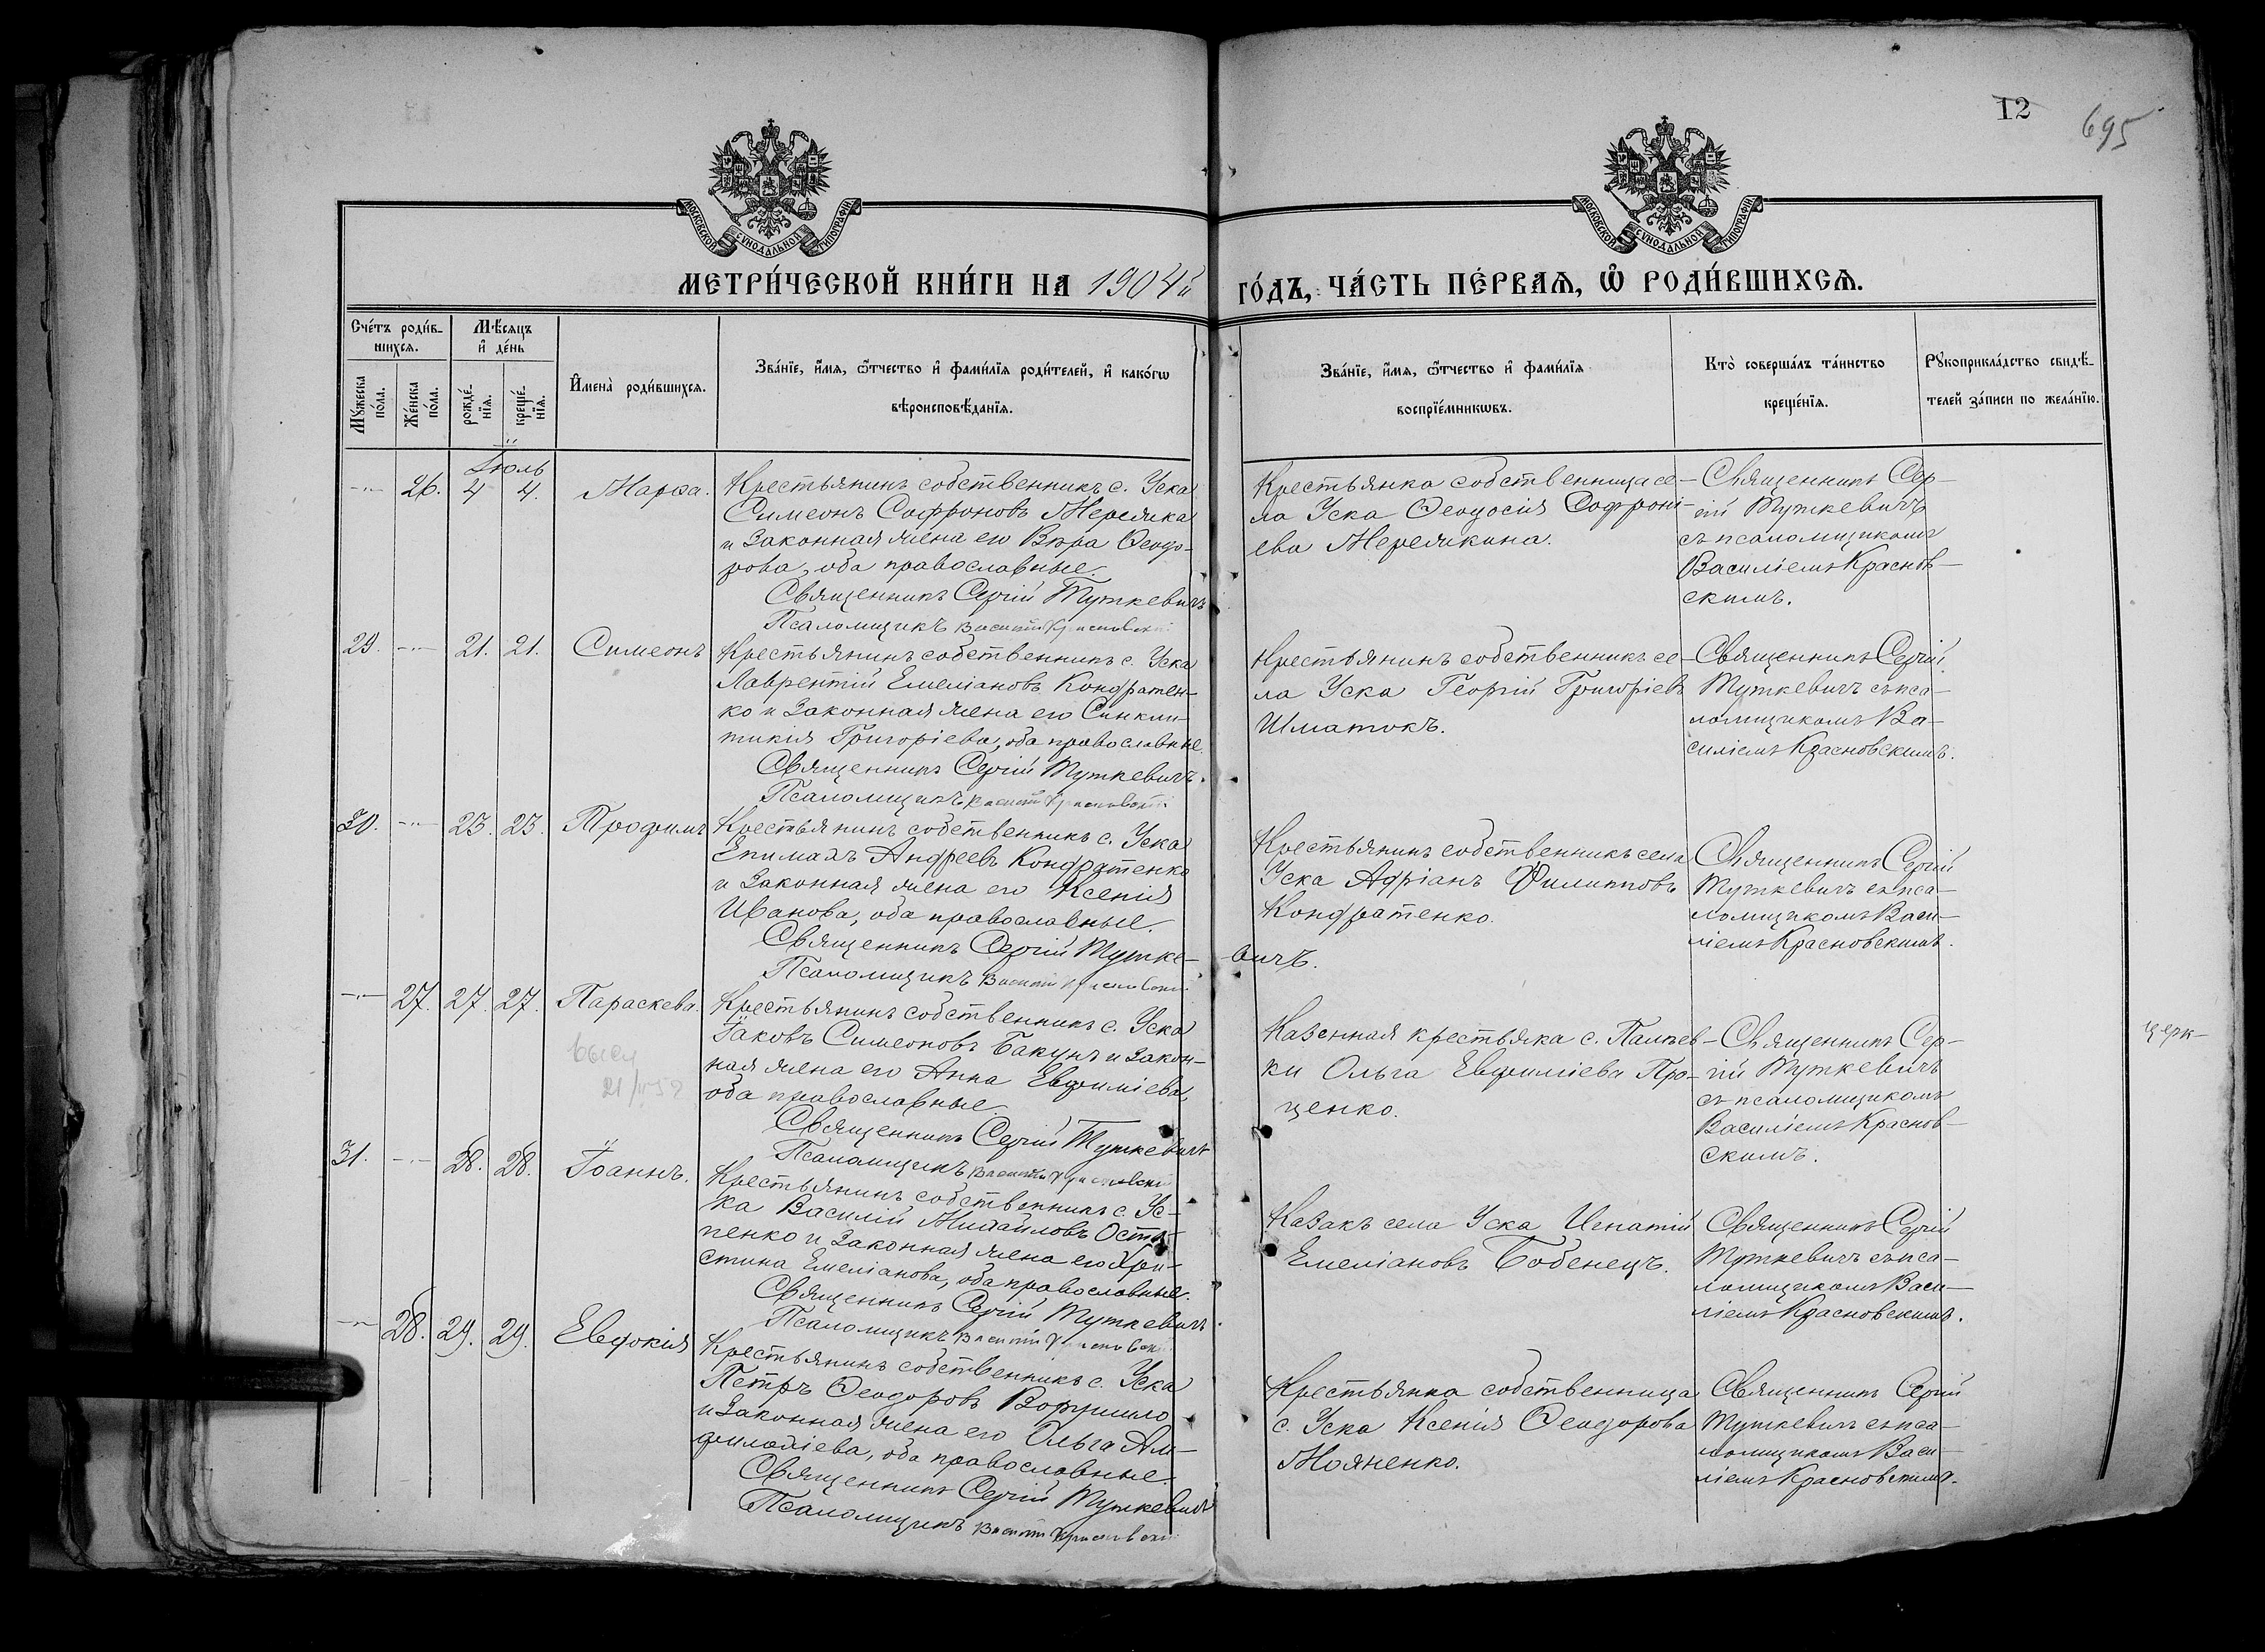 12
695
МОСКОВСКОЙ СѴНОДАЛЬНОЙ ТИПОГРАФІИ
МОСКОВСКОЙ СѴНОДАЛЬНОЙ ТИПОГРАФІИ
МЕТРИ́ЧЕСКОЙ КНИ́ГИ НА 1904й ГО́ДЪ, ЧА́СТЬ ПЕ́РВАѦ, Ѽ РОДИ́ВШИХСѦ.
Сче́тъ роди́в-
шихсѧ.
Мѣ́сѧцъ
и҆ де́нь
Мꙋ́жеска по́ла.
Же́нска по́ла.
рожде́-
нїѧ.
креще́-
нїѧ.
И҆мена̀ роди́вшихсѧ.
Зва́нїе, и҆́мѧ, ѻ҆́тчество и҆ фами́лїѧ роди́телей, и҆ како́гѡ
вѣроисповѣ́данїѧ.
Зва́нїе, и҆́мѧ, ѻ҆́тчество и҆ фами́лїѧ
воспрїе́мникѡвъ.
Кто̀ соверша́лъ та́инство
креще́нїѧ.
Рꙋкоприкла́дство свидѣ́-
телей за́писи по жела́нїю.
Іюль
26. 4 4. Марѳа.
Крестьянинъ собственникъ с. Уска
Симеонъ Софроновъ Мережка
и законная жена его Вѣра Ѳеодо-
рова, оба православные.
Священникъ Сергій Туткевичъ
Псаломщикъ Василій Красновскій
Крестьянка собственница се-
ла Уска Ѳеодосія Софроні-
ева Мережкина.
Священникъ Сер-
гій Туткевичъ
съ псаломщикомъ
Василіемъ Краснов-
скимъ.
29. 21. 21. Симеонъ
Крестьянинъ собственникъ с. Уска
Лаврентій Емеліановъ Кондратен-
ко и законная жена его Синкли-
тикія Григоріева, оба православные.
Священникъ Сергій Туткевичъ.
Псаломщикъ Василій Красновскій
Крестьянинъ собственникъ се-
ла Уска Георгій Григоріевъ
Шматокъ.
Священникъ Сергій
Туткевичъ съ пса-
ломщикомъ Ва-
силіемъ Красновскимъ.
30. 23. 23. Трофимъ
Крестьянинъ собственникъ с. Уска
Епимахъ Андреевъ Кондратенко
и законная жена его Ксенія
Иванова, оба православные.
Священникъ Сергій Туткевичъ.
Псаломщикъ Василій Красновскій
Крестьянинъ собственникъ села
Уска Адріанъ Филипповъ
Кондратенко.
Священникъ Сергій
Туткевичъ съ пса-
ломщикомъ Васи-
ліемъ Красновскимъ.
27. 27. 27. Параскева.
Крестьянинъ собственникъ с. Уска
Іаковъ Симеоновъ Бакунъ и закон-
ная жена его Анна Евфиміева,
оба православные.
Священникъ Сергій Туткевичъ
Псаломщикъ Василій Красновскій
Казенная крестьянка с. Пальев-
ки Ольга Евфиміева Про-
ценко.
Священникъ Сер-
гій Туткевичъ
съ псаломщикомъ
Василіемъ Краснов-
скимъ.
церк-
31. 28. 28. Іоаннъ.
Крестьянинъ собственникъ с. Ус-
ка Василій Михайловъ Оста-
пенко и законная жена его Хри-
стина Емеліанова, оба православные.
Священникъ Сергій Туткевичъ.
Псаломщикъ Василій Красновскій
Казакъ села Уска Игнатій
Емеліановъ Бобенецъ.
Священникъ Сергій
Туткевичъ съ пса-
ломщикомъ Васи-
ліемъ Красновскимъ.
28. 29. 29. Евдокія
Крестьянинъ собственникъ с. Уска
Петръ Ѳеодоровъ
и законная жена его Ольга Ам-
филохіева, оба православные.
Священникъ Сергій Туткевичъ
Псаломщикъ Василій Красновскій
Крестьянка собственница
с. Уска Ксенія Ѳеодорова
Священникъ Сергій
Туткевичъ съ пса-
ломщикомъ Васи-
ліемъ Красновскимъ.